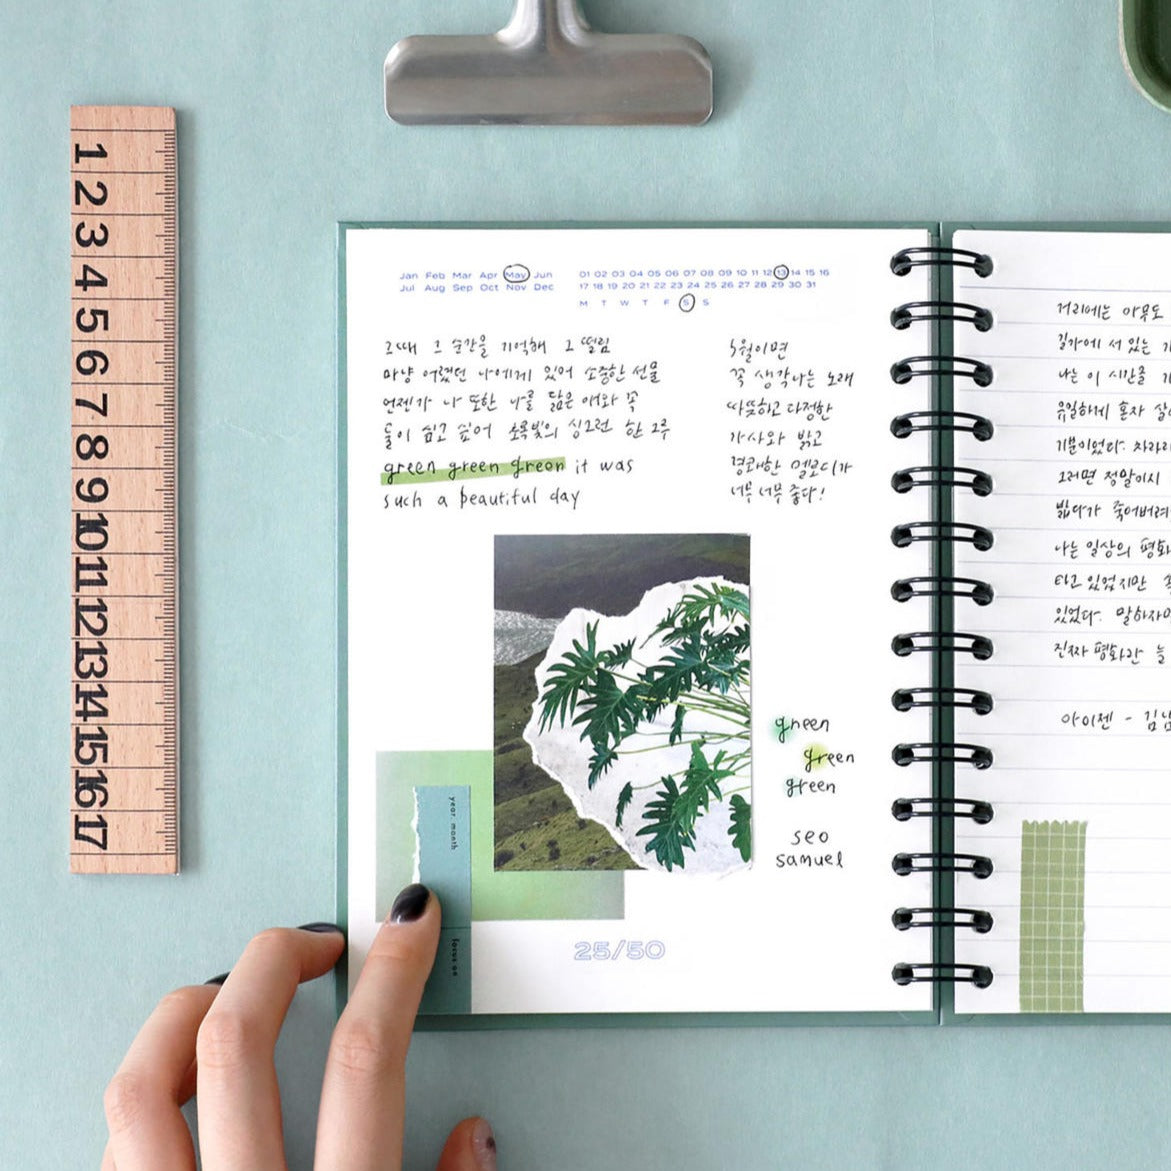 1
2
3
4
5
6
7
8
9
10
11
12
13
14
15
16
17
Jan Feb Mar Apr May Jun
Jul Aug Sep Oct Nov Dec
01 02 03 04 05 06 07 08 09 10 11 12 13 14 15 16
17 18 19 20 21 22 23 24 25 26 27 28 29 30 31
M T W T F S S
그때 그 순간을 기억해 그 떨림
마냥 어렸던 나에게 있어 소중한 선물
언젠가 나 또한 나를 닮은 애와 꼭
둘이 쉬고 싶어 초록빛의 싱그런 한 그루
green green green it was
such a beautiful day
5월이면
꼭 생각나는 노래
따뜻하고 다정한
가사와 밝고
경쾌한 멜로디가
너무 너무 좋다!
green
green
green
seo
samuel
year. month
focus on
25/50
거리에는 아무도
길가에 서 있는
나는 이 시간을
유일하게 혼자
기분이었다. 차라리
그러면 정말이지
밟다가 죽어버려
나는 일상의 평화
타고 있었지만
있었다. 말하자면
진짜 평화란 늘
아이젠 - 김남